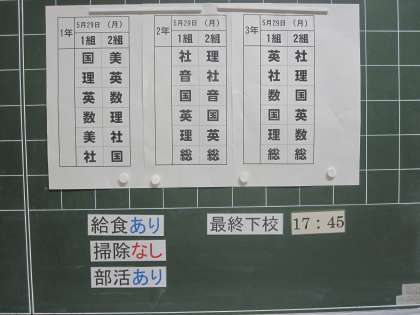 1年 5月29日 (月)
1組 2組
国 美
理 英
英 数
数 理
美 社
社 国
2年 5月29日 (月)
1組 2組
社 理
音 社
国 音
英 国
理 英
総 総
3年 5月29日 (月)
1組 2組
英 社
社 理
数 国
国 英
理 数
総 総
給食あり 最終下校 17:45
掃除なし
部活あり